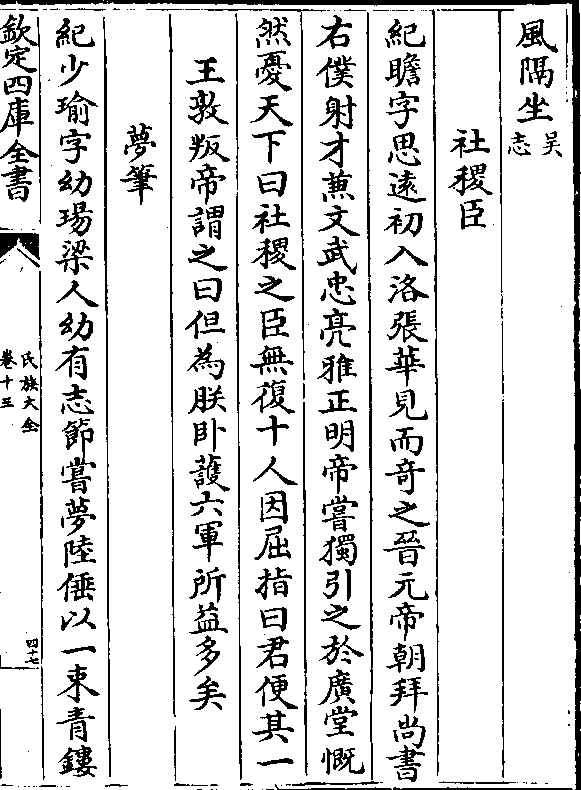 風隅坐吳志
社稷臣
紀瞻字思遠初入洛張華見而奇之晉元帝朝拜尚書
右僕射才蕪文武忠亮雅正明帝嘗獨引之於廣堂慨
然憂天下曰社稷之臣無復十人因屈指曰君便其一
王敦叛帝謂之曰但為朕卧護六軍所益多矣
夢筆
紀少瑜字幼瑒梁人幼有志節嘗夢陸倕以一束青鏤
欽定四庫全書
氏族大全
卷十三
四十七